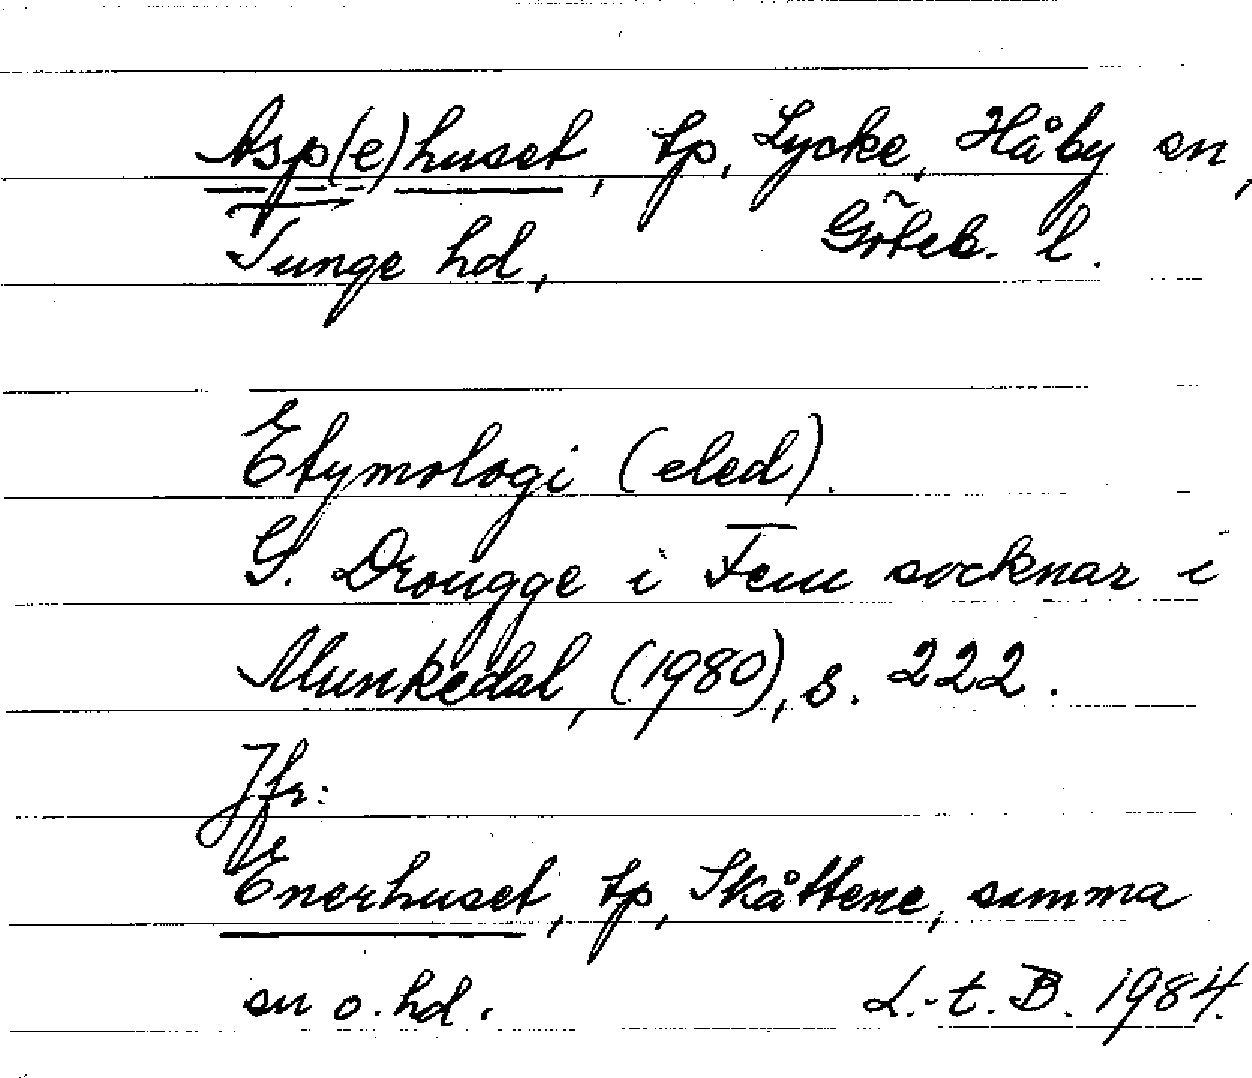 Asp(e)huset, tp, Lycke, Håby sn,
Tunge hd, Göteb. l.
Etymologi (eled).
G. Drougge i Fem socknar i
Munkedal, (1980), s. 222.
Jfr:
Enerhuset, tp, Skåttene, samma
sn o. hd. L.-t. B. 1984.